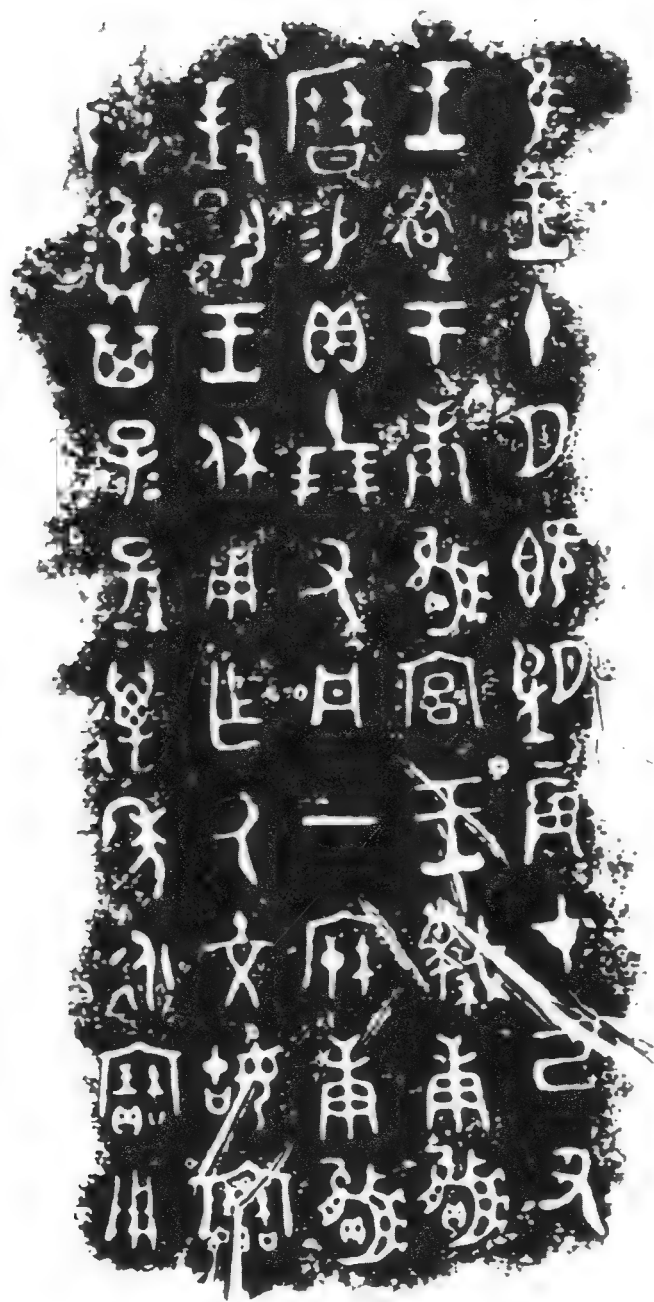 隹王十月既望辰才己丑
王各于庚嬴宮王蔑庚嬴
曆易貝十朋又丹一庚嬴
對揚王休用乍厥文姑寶
尊彝其子子孫孫萬年永寶用